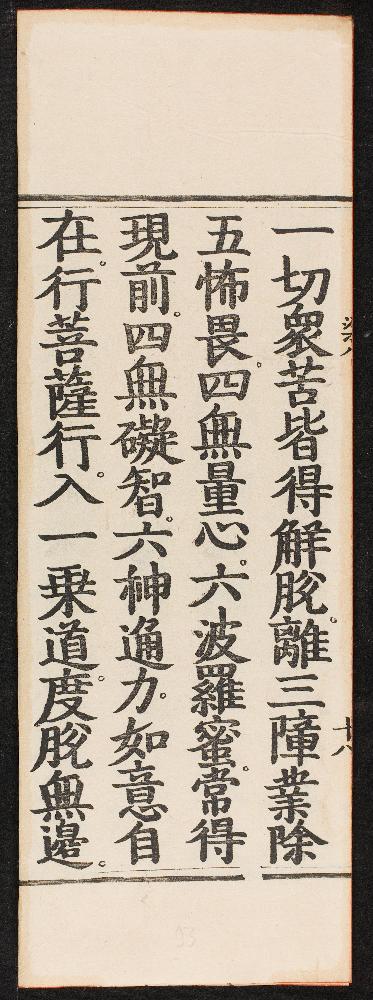 一切衆苦皆得解脫。離三障業除
五怖畏。四無量心。六波羅蜜。常得
現前。四無礙智。六神通力。如意自
在。行菩薩行。入一乗道。度脫無邊。
十八
93